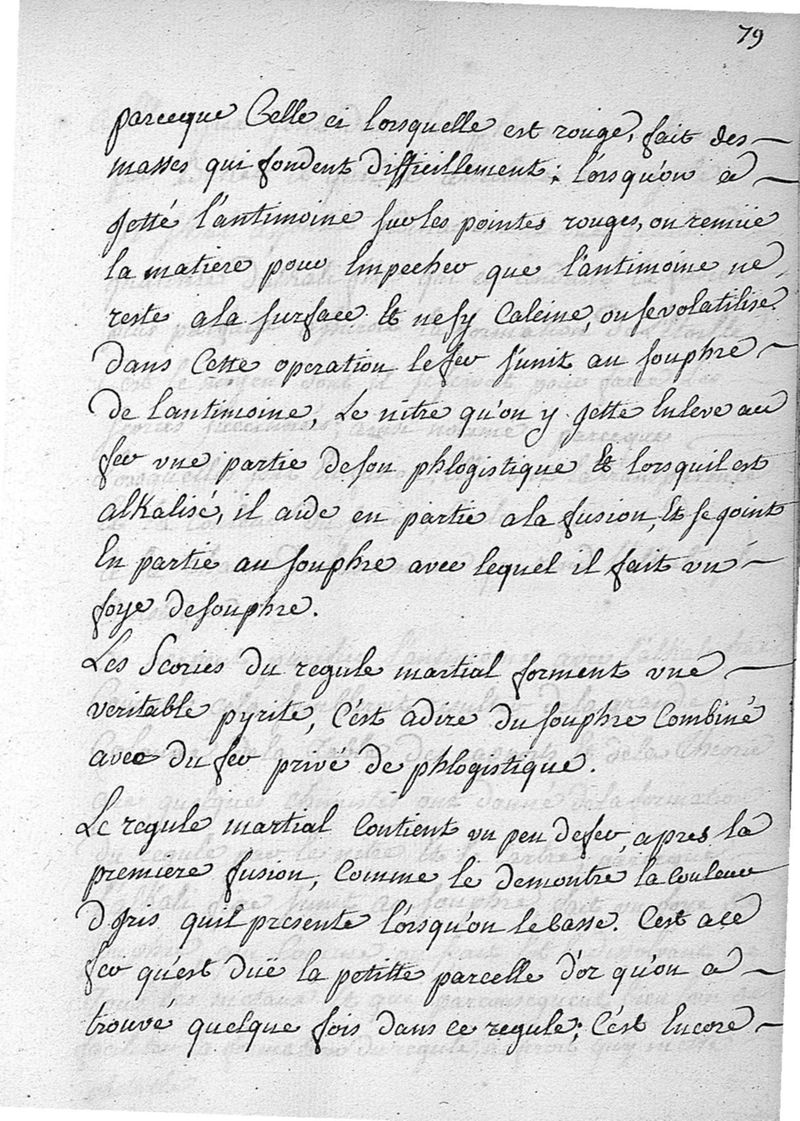 79
parceque Celle ci lorsquelle est rouge, fait des
masses qui fondent difficillement; lorsqu'on a
jetté l'antimoine sur les pointes rouges, on remüe
la matiere pour Empecher que l'antimoine ne
reste ala surface Et nesy Calcine, ou se volatilise.
Dans Cette operation le fer s'unit au souphre
de lantimoine, Le nitre qu'on y jette Enleve au
fer une partie deson phlogistique Et lorsquil est
alkalisé, il aide en partie ala fusion, Et se joint
En partie au souphre avec lequel il fait un
foye desouphre.
Les Scories du regule martial forment une
veritable pyrite, C'est adire du souphre Combiné
avec du fer privé de phlogistique.
Le regule martial Contient un peu defer, apres la
premiere fusion, Comme le demontre la Couleur
d'jris quil presente lorsqu'on le Casse. C'est a ce
fer qu'est duë la petitte parcelle d'or qu'on a
trouve quelque fois dans ce regule; C'est Encore